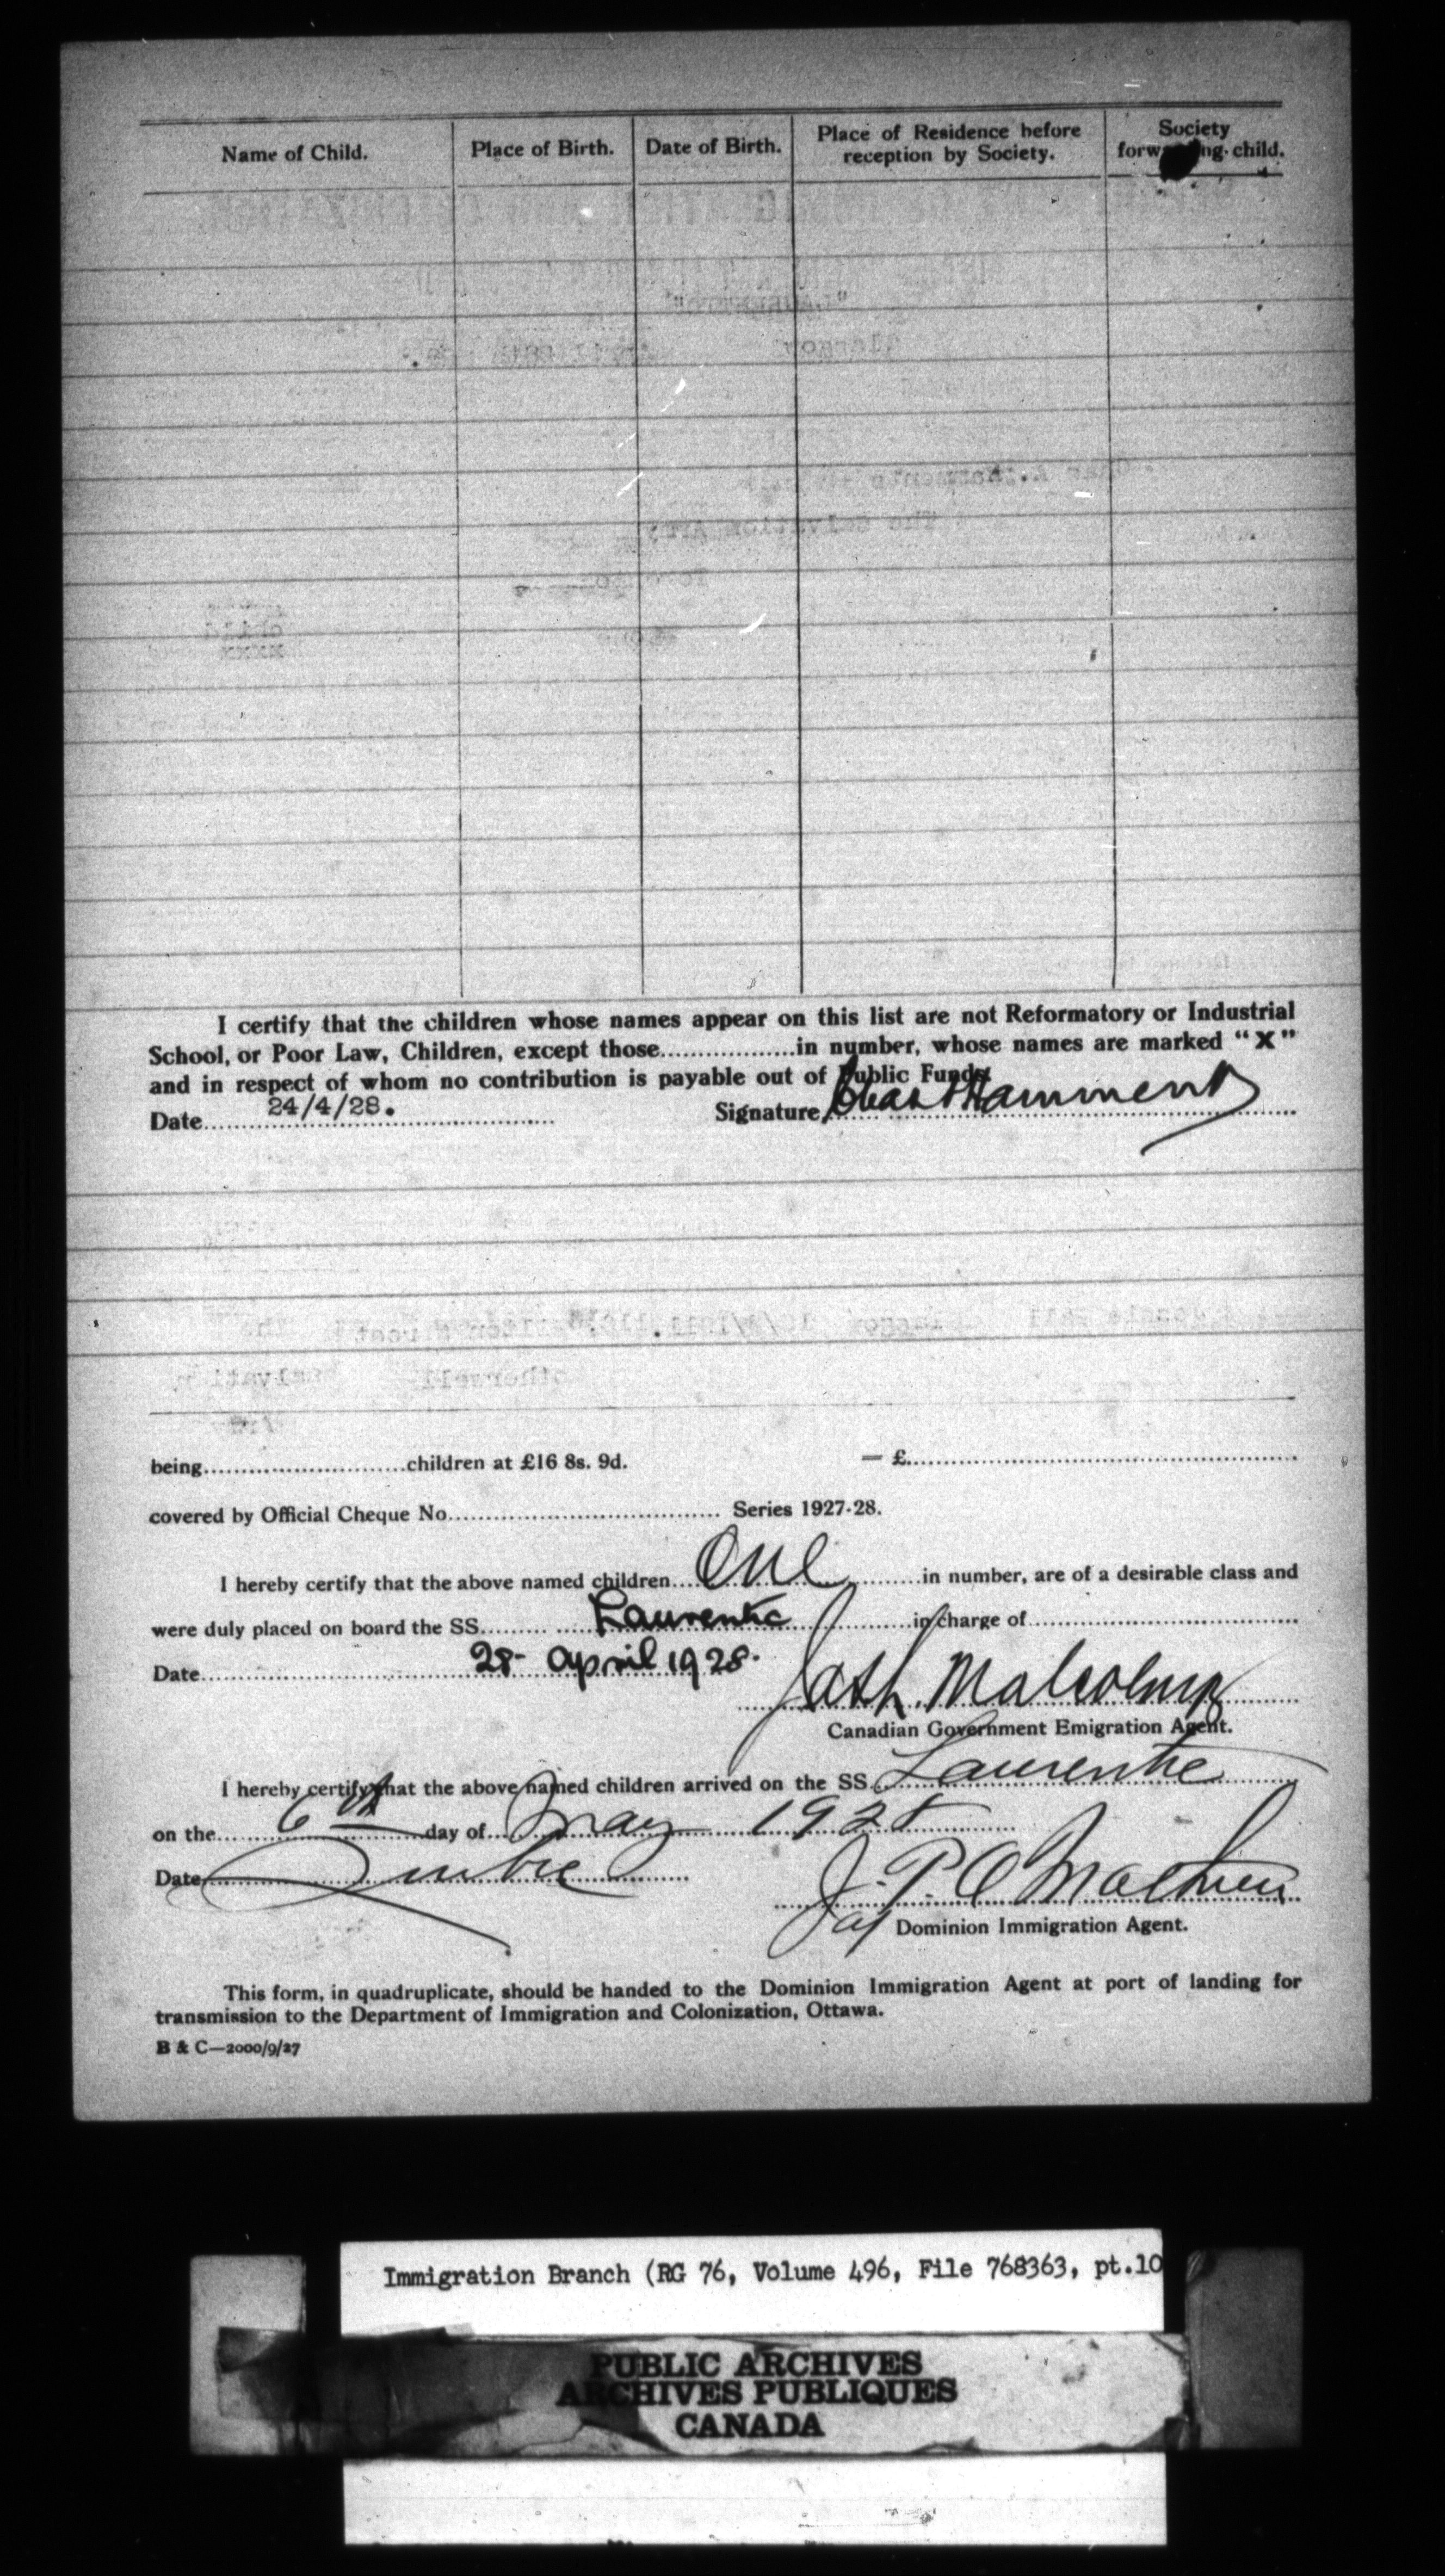 Name of Child. Place of Birth. Date of Birth. Place of Residence before reception by Society. Society child.
I certify that the children whose names appear on this list are not Reformatory or Industrial
School, or Poor Law, Children, except those..................in number, whose names are marked "X"
and in respect of whom no contribution is payable out of Public Funds.
Date 24/4/28. Signature
being............................children at £16 8s. 9d. — £
covered by Official Cheque No..................................... Series 1927-28.
I hereby certify that the above named children One in number, are of a desirable class and
were duly placed on board the SS. Laurentic in charge of
Date 28- April 1928.
Malcolm
Canadian Government Emigration Agent.
I hereby certify that the above named children arrived on the SS. Laurentic
on the 6th day of May 1928
Date Quebec J. P. O
Dominion Immigration Agent.
This form, in quadruplicate, should be handed to the Dominion Immigration Agent at port of landing for
transmission to the Department of Immigration and Colonization, Ottawa.
B & C—2000/9/27
Immigration Branch (RG 76, Volume 496, File 768363, pt.10
PUBLIC ARCHIVES
ARCHIVES PUBLIQUES
CANADA